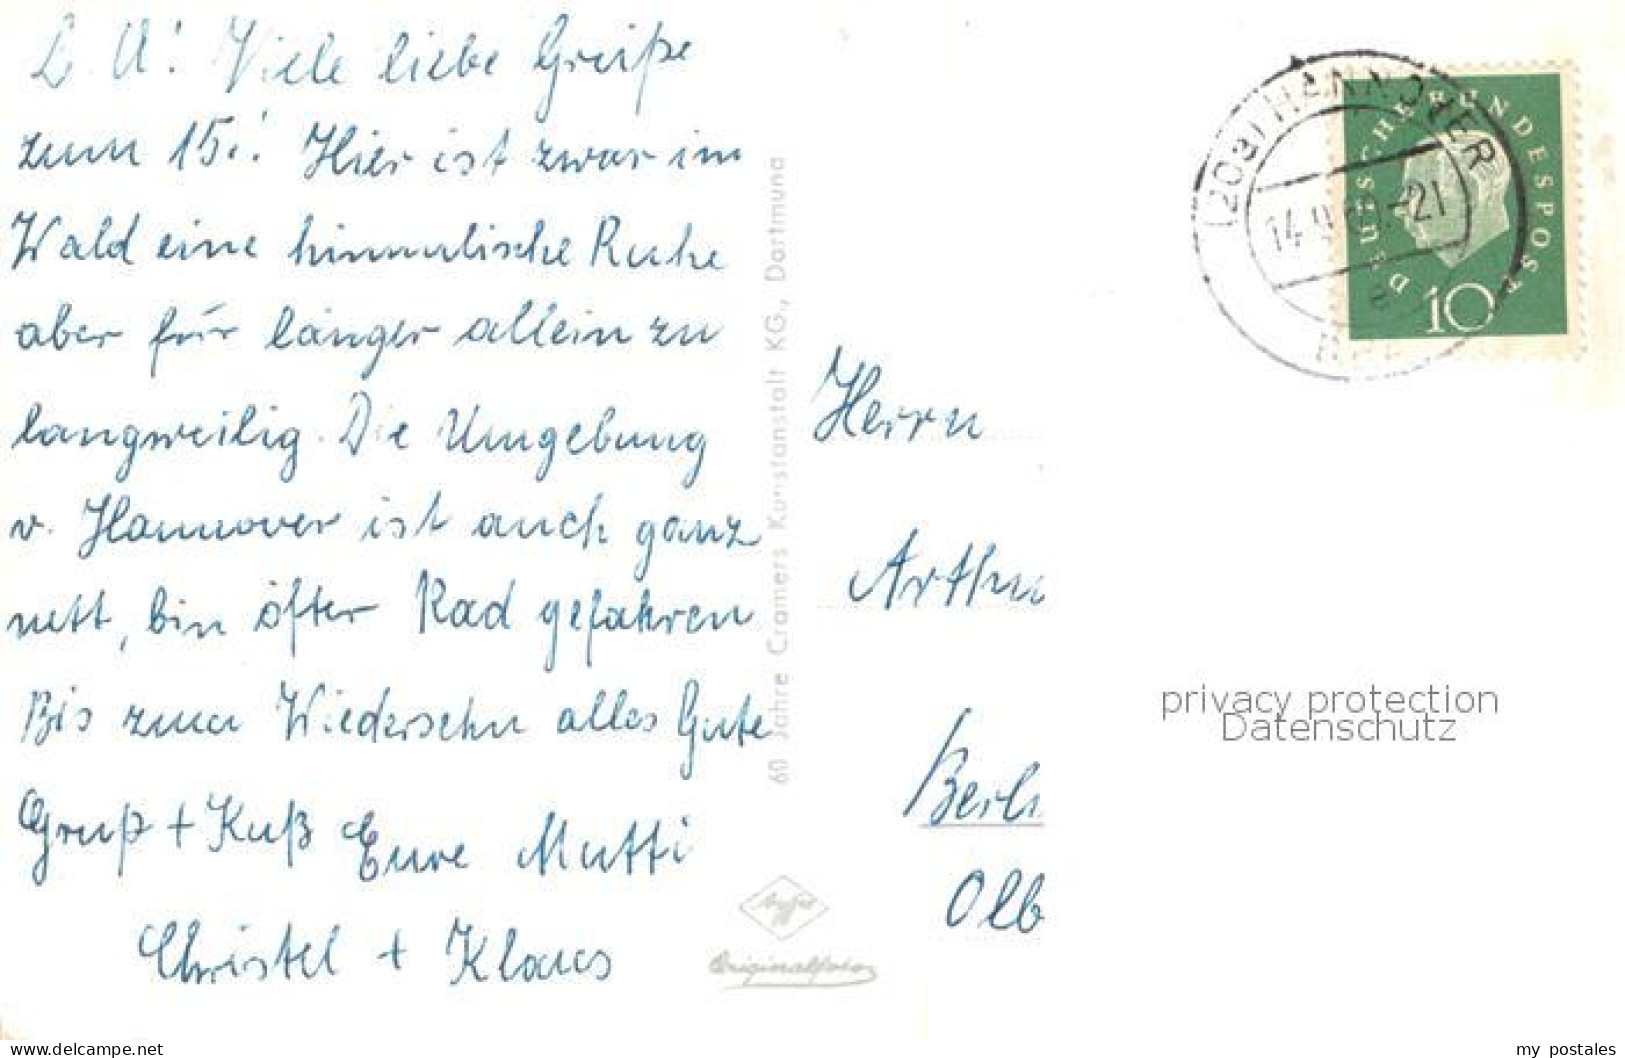 L. A! Viele liebe Grüße
zum 15.! Hier ist zwar im
Wald eine himmlische Ruhe
aber für länger allein zu
langweilig. Die Umgebung
v. Hannover ist auch ganz
nett, bin öfter Rad gefahren
Bis zum Wiedersehn alles Gute
Gruß + Kuß Eure Mutti
Christel + Klaus
60 Jahre Cramers Kunstanstalt KG, Dortmund
Agfa
Originalfoto
(20a) HANNOVER
14. -21
a
DEUTSCHE BUNDESPOST
10
Herrn
Arthu
Berli
Olb
privacy protection
Datenschutz
www.delcampe.net
my_postales